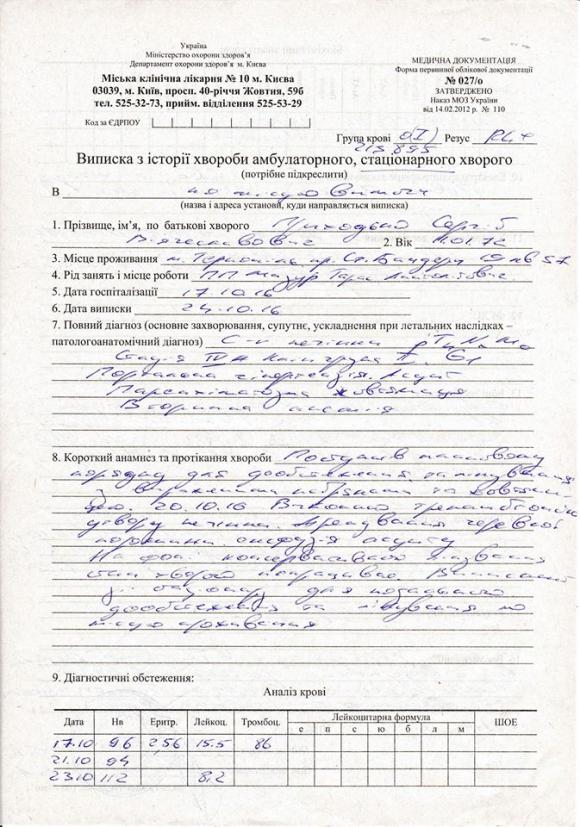 Україна
Міністерство охорони здоров'я
Департамент охорони здоров'я м. Києва
Міська клінічна лікарня № 10 м. Києва
03039, м. Київ, просп. 40-річчя Жовтня, 59б
тел. 525-32-73, прийм. відділення 525-53-29
Код за ЄДРПОУ
МЕДИЧНА ДОКУМЕНТАЦІЯ
Форма первинної облікової документації
№ 027/о
ЗАТВЕРДЖЕНО
Наказ МОЗ України
від 14.02.2012 р. № 110
Група крові 0(I) Резус Rh+
Виписка з історії хвороби амбулаторного, стаціонарного хворого
(потрібне підкреслити)
В
(назва і адреса установи, куди направляється виписка)
1. Прізвище, ім'я, по батькові хворого Приходько Сергій
В'ячеславович 2. Вік 11.01.72
3. Місце проживання м. Тернопіль пр. Ст. Бандери кв 57
4. Рід занять і місце роботи ПП Мазур Тарас
5. Дата госпіталізації 17.10.16
6. Дата виписки 24.10.16
7. Повний діагноз (основне захворювання, супутнє, ускладнення при летальних наслідках –
патологоанатомічний діагноз) С-r печінки
Стадія IV клін група
Портальна гіпертензія. Асцит
Паренхіматозна жовтяниця
Вторинна анемія
8. Короткий анамнез та протікання хвороби Поступив в плановому
порядку для дообстеження та лікування
20.10.16 Виконано
утвору печінки. Дренування черевної
порожнини
На фоні консервативного лікування
стан хворого покращився. Виписаний
зі стаціонару для подальшого
дообстеження та лікування по
місцю проживання
9. Діагностичні обстеження:
Аналіз крові
Дата Нв Еритр. Лейкоц. Тромбоц. Лейкоцитарна формула ШОЕ
е п с ю б л м
17.10 96 2,56 15.5 86
21.10 94
23.10 112 8,2